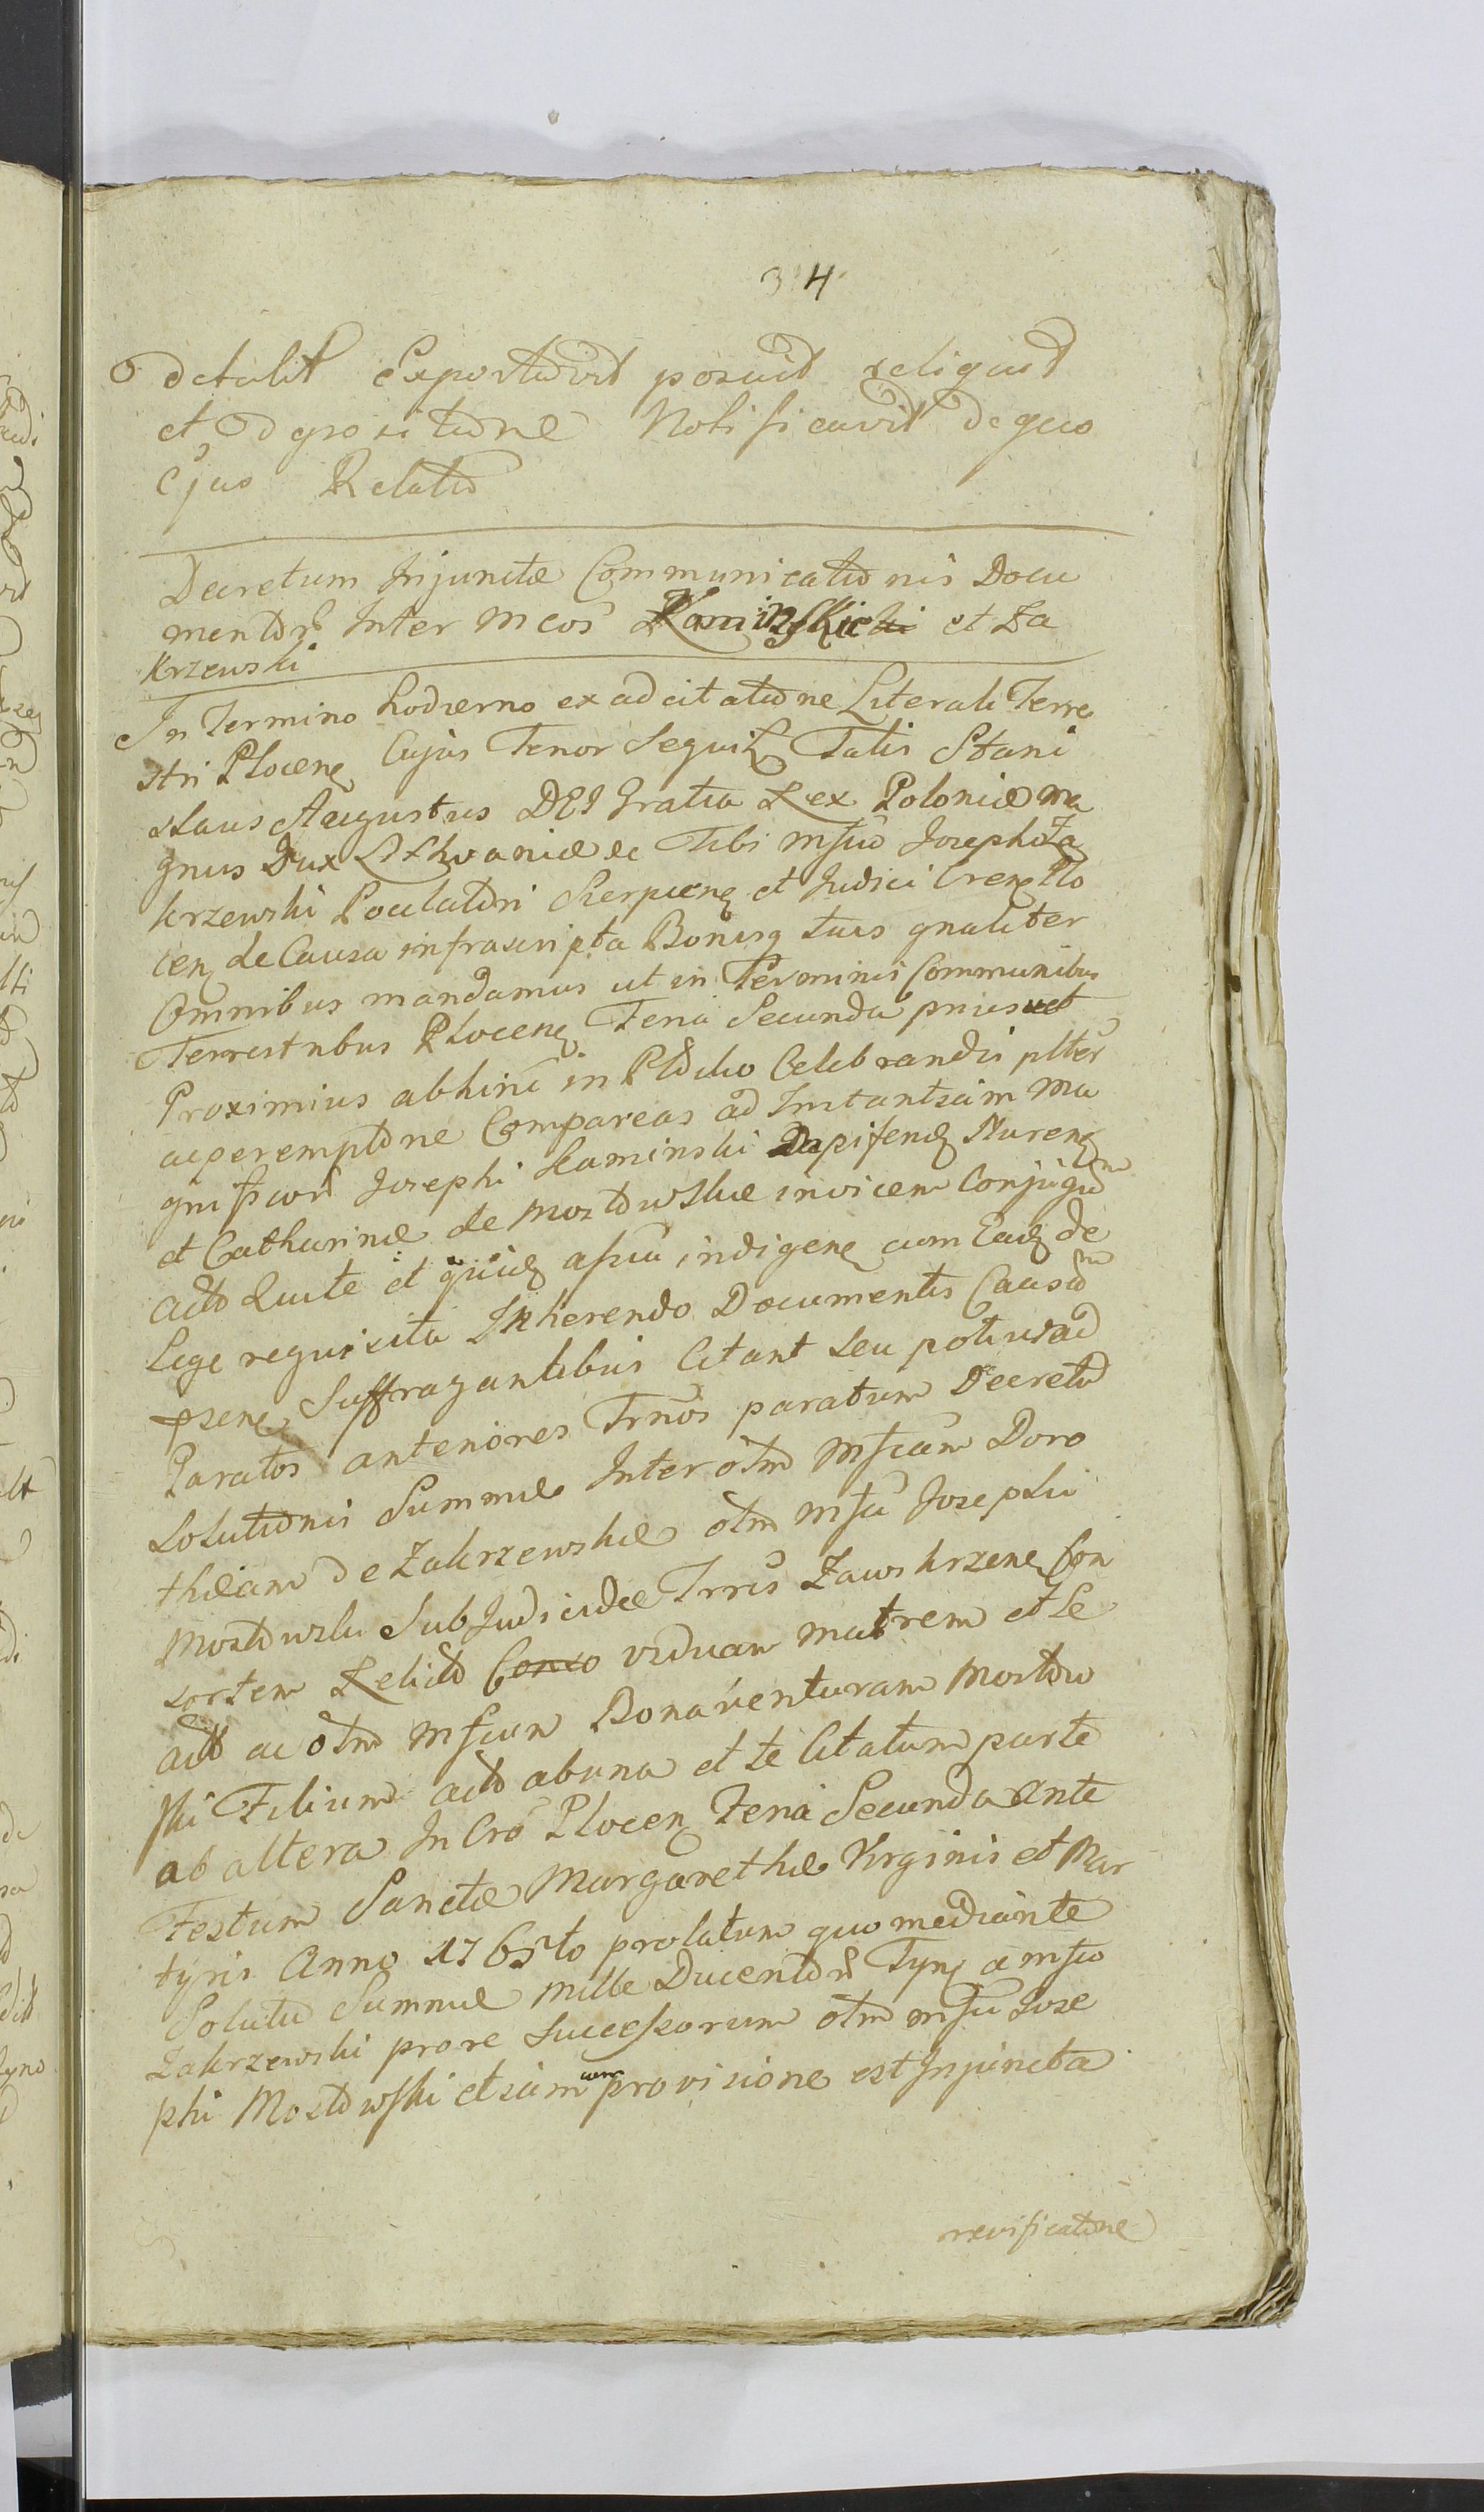 34
detulit exportavit posuit reliquit
et de positione Notificavit de quo
Ejus Relatio
Decretum Injunctæ Communicationis Docu
mentor Inter Mcos Kaminskich et Za
krzewski
In Termino hodierno ex adcitatione Literali Terre
stri Plocen Cujus Tenor Sequit Talis Stani
slaus Augustus DEI Gratia Rex Poloniæ Ma
gnus Dux Lithvaniæ &c Tibi Msco Josepho Za
krzewski Poculatori Sierpcen et Judici Cren Plo
cen de Causa infrascripta Bonisq tuis gnaliter
Omnibus mandamus ut in Terminis Communibus
Terrestribus Plocen Feria Secunda
Proximius abhinc in Celebrandis plter
ac peremptorie Compareas ad Instantiam Ma
gnificor Josephi Kaminski Dapiferi Nuren
et Catharinæ de Mostowskie invicem Conjugum
acto Quite et indigen cum Eadem de
Lege requisita Inherendo Documentis Causam
psene Suffragantibus Citant seu potius ad
Paratos anteriores Trnos paratum Decreto
Solutionis Summæ Inter olim Mscam Doro
theam de Zakrzewskie olim Msci Josephi
Mostowski SubJudicidæ Trris Zawskrzen Con
sortem Relicto viduam matrem et Se
acto ac olim Mscum Bonaventuram Mostow
ski Filium acto ab una et te Citatum parte
ab altera In Cro Plocen Feria Secunda Ante
Festum Sanctæ Margarethæ Virginis et Mar
tyris Anno 1765to prolatum quo mediante
Solutio Summæ Mille Ducentor Tyn a Msco
Zakrzewski pro re Successorum olim Msci Jose
phi Mostowski etiam cum provisione est Injuncta
revificatione